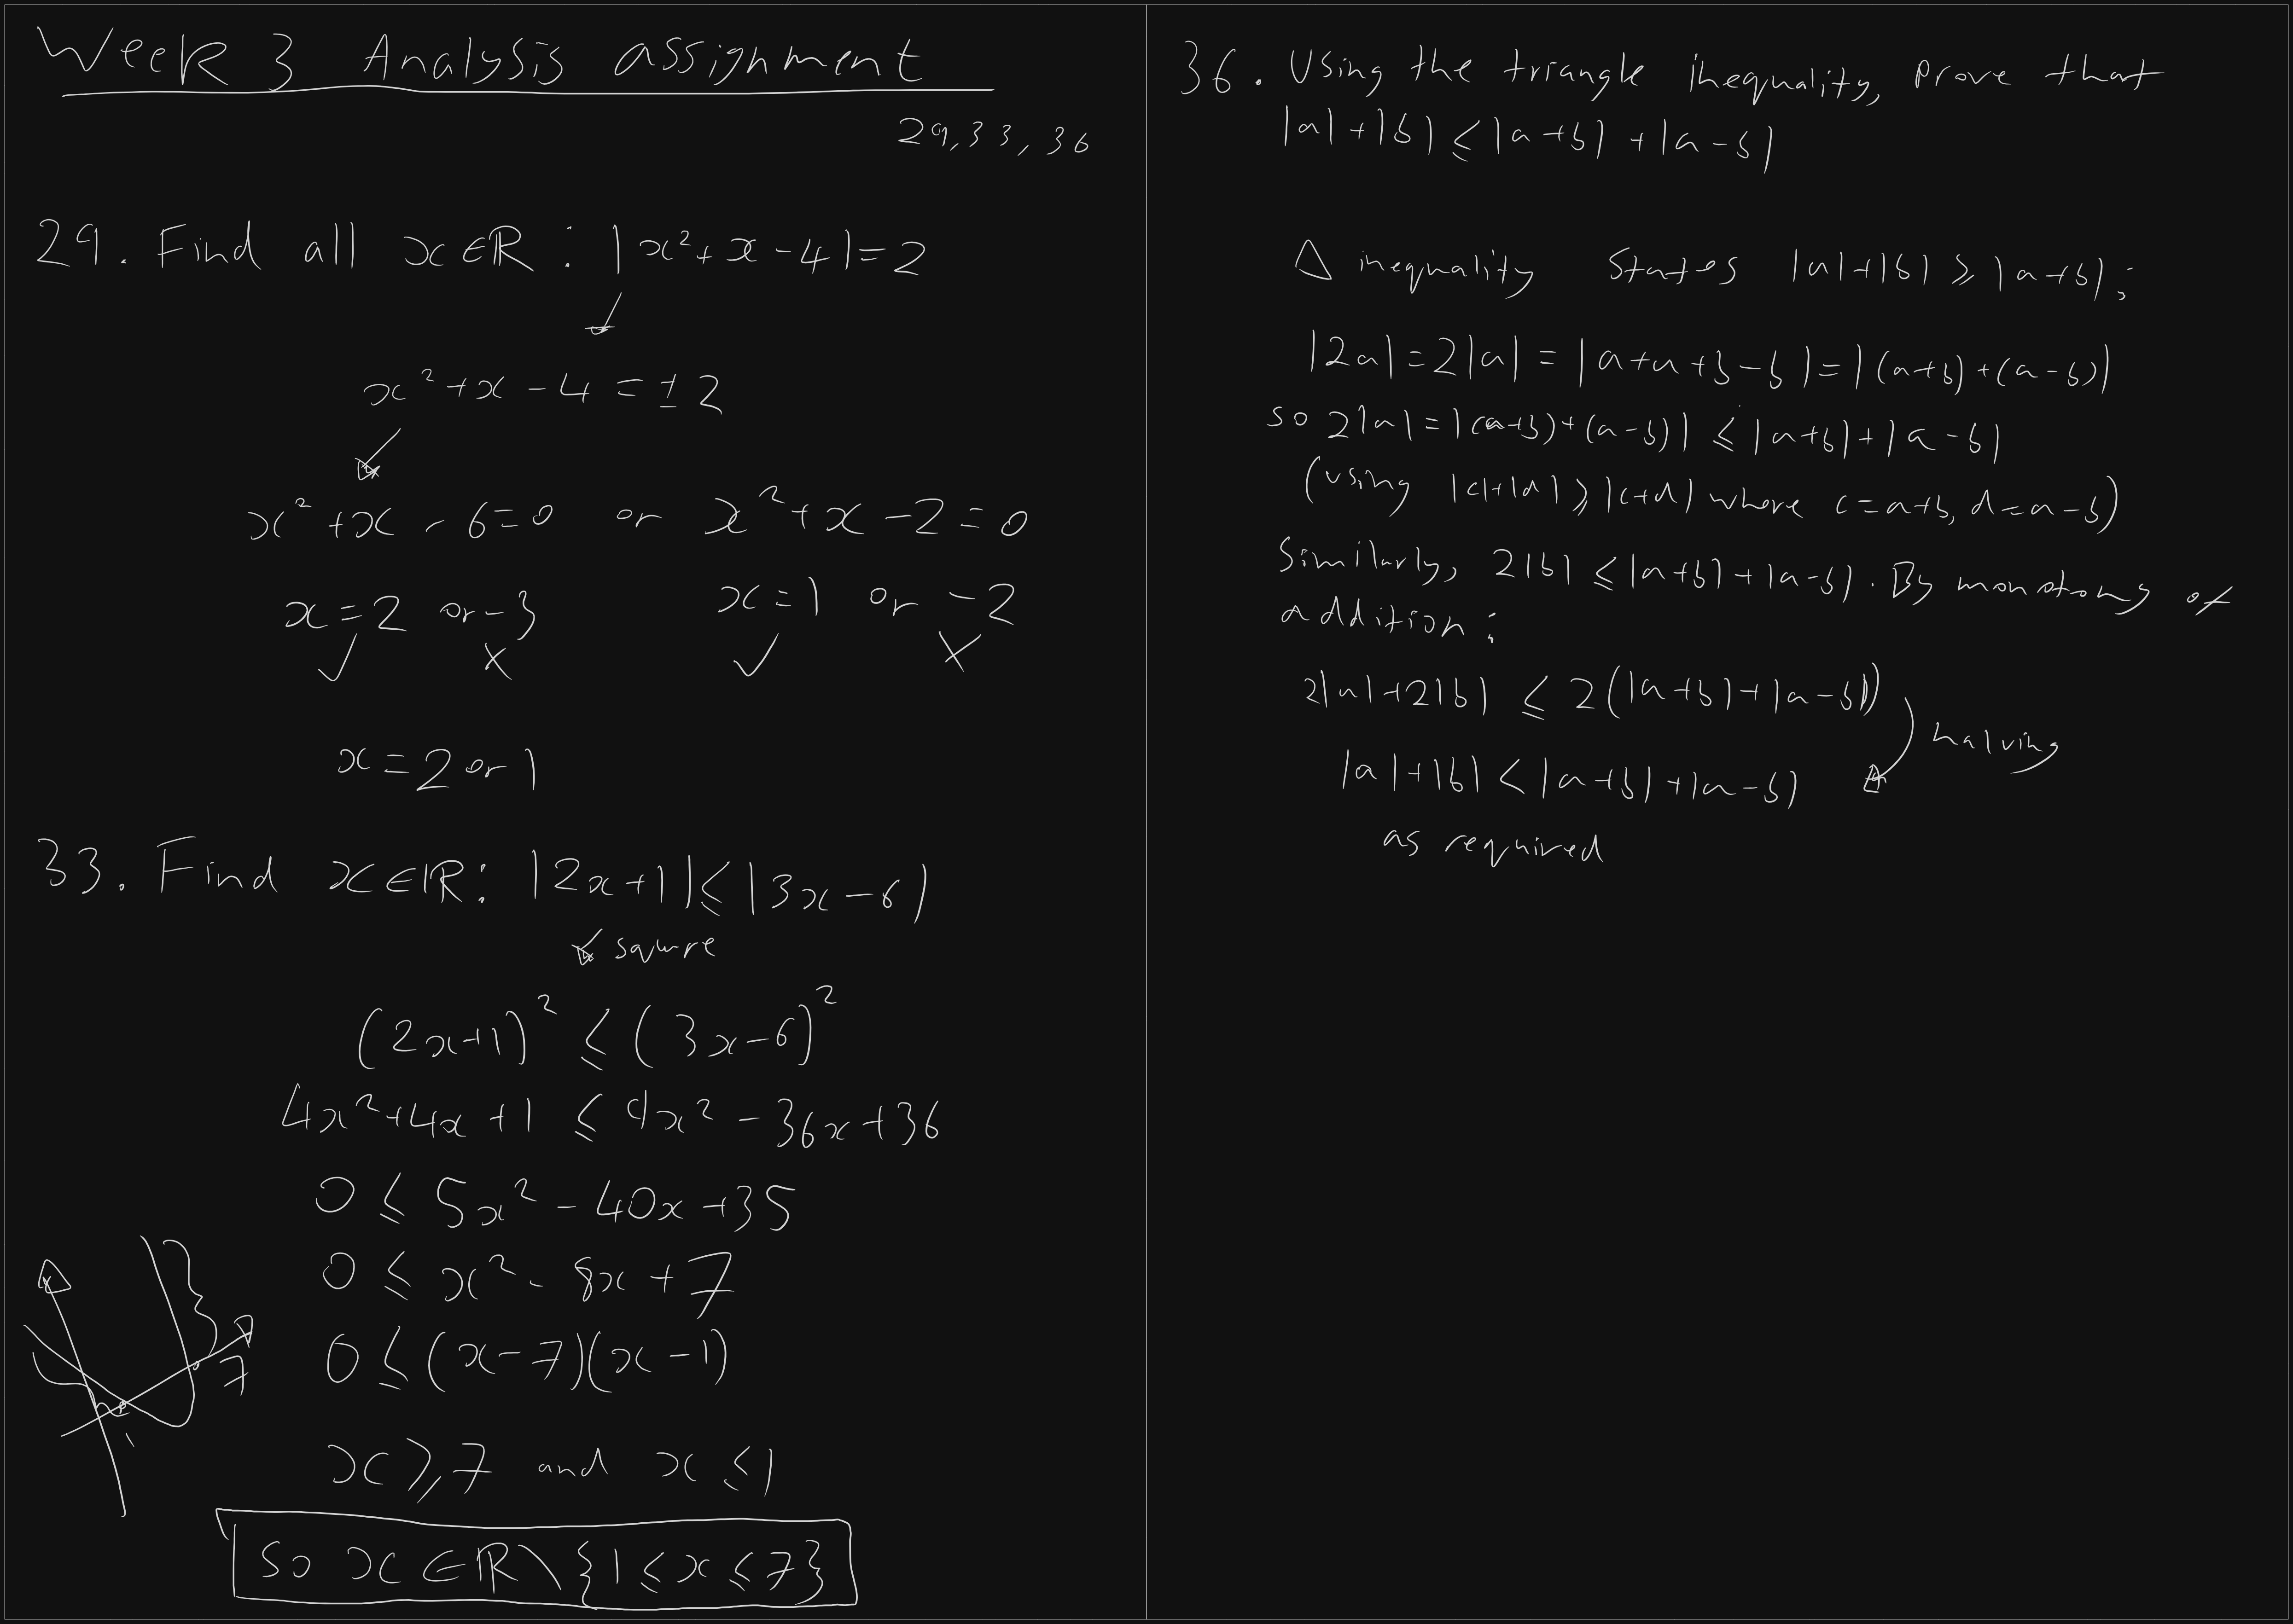 Week 3 Analysis assignment
29, 33, 36
29. Find all x∈ℝ : |x²+x-4|=2
x²+x-4=±2
x²+x-6=0 or x²+x-2=0
x=2 or -3 x=1 or -2
✓ × ✓ ×
x=2 or 1
33. Find x∈ℝ: |2x+1|≤|3x-6|
square
(2x+1)²≤(3x-6)²
4x²+4x+1≤9x²-36x+36
0≤5x²-40x+35
0≤x²-8x+7
0≤(x-7)(x-1)
1 7
x≥7 and x≤1
So x∈ℝ\{1≤x≤7}
36. Using the triangle inequality, prove that
|a|+|b|≤|a+b|+|a-b|
Δ inequality states |a|+|b|≥|a+b|:
|2a|=2|a|=|a+a+b-b|=|(a+b)+(a-b)|
so 2|a|=|(a+b)+(a-b)|≤|a+b|+|a-b|
(using |c|+|d|≥|c+d| where c=a+b, d=a-b)
Similarly, 2|b|≤|a+b|+|a-b|. By monotony of
addition:
2|a|+2|b|≤2(|a+b|+|a-b|)
halving
|a|+|b|<|a+b|+|a-b|
as required